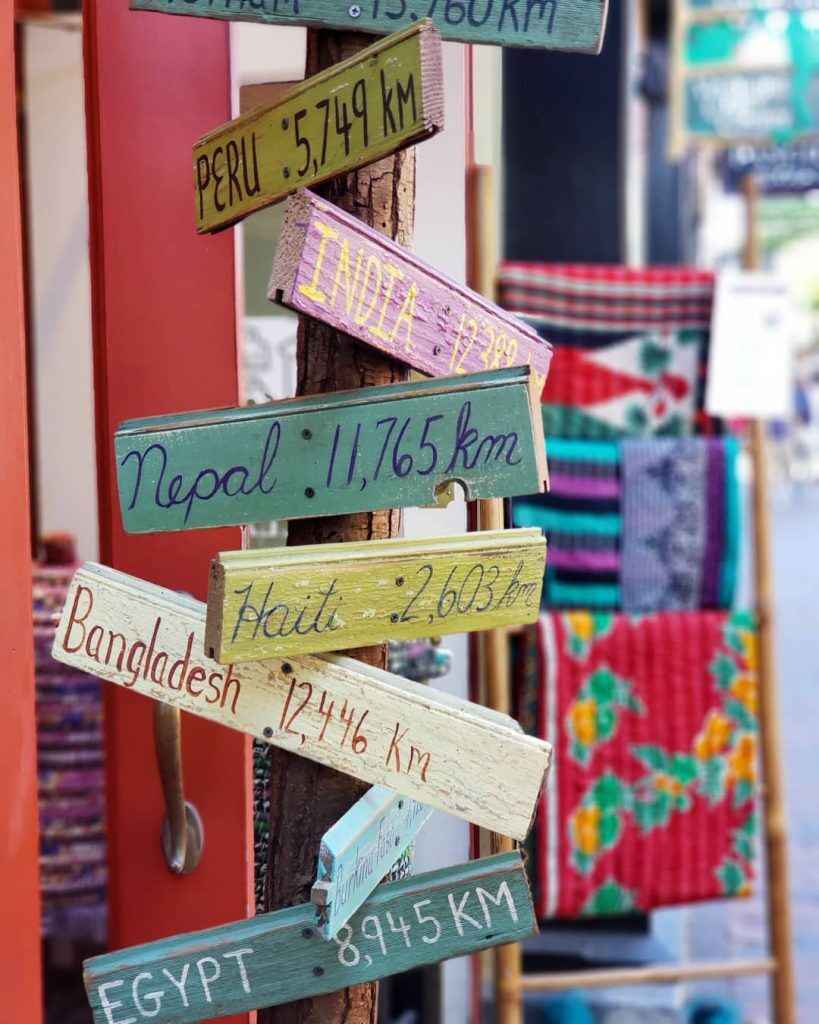 13,760 km
PERU 5,749 KM
INDIA
Nepal 11,765 km
Haiti 2,603 km
Bangladesh 12,446 Km
Burkina Faso
EGYPT 8,945 KM